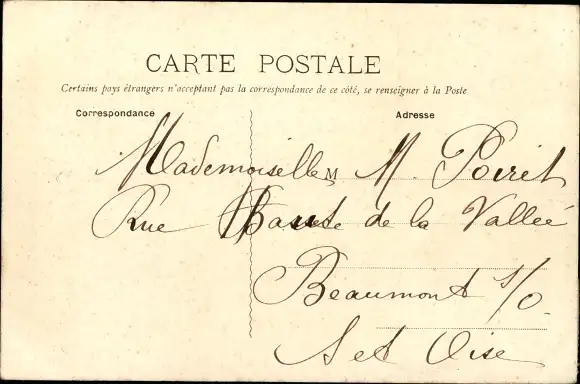 CARTE POSTALE
Certains pays étrangers n'acceptant pas la correspondance de ce côté, se renseigner à la Poste
Correspondance
Adresse
Mademoiselle M M. Poiret
Rue Haute de la Vallée
Beaumont s/O.
S et Oise